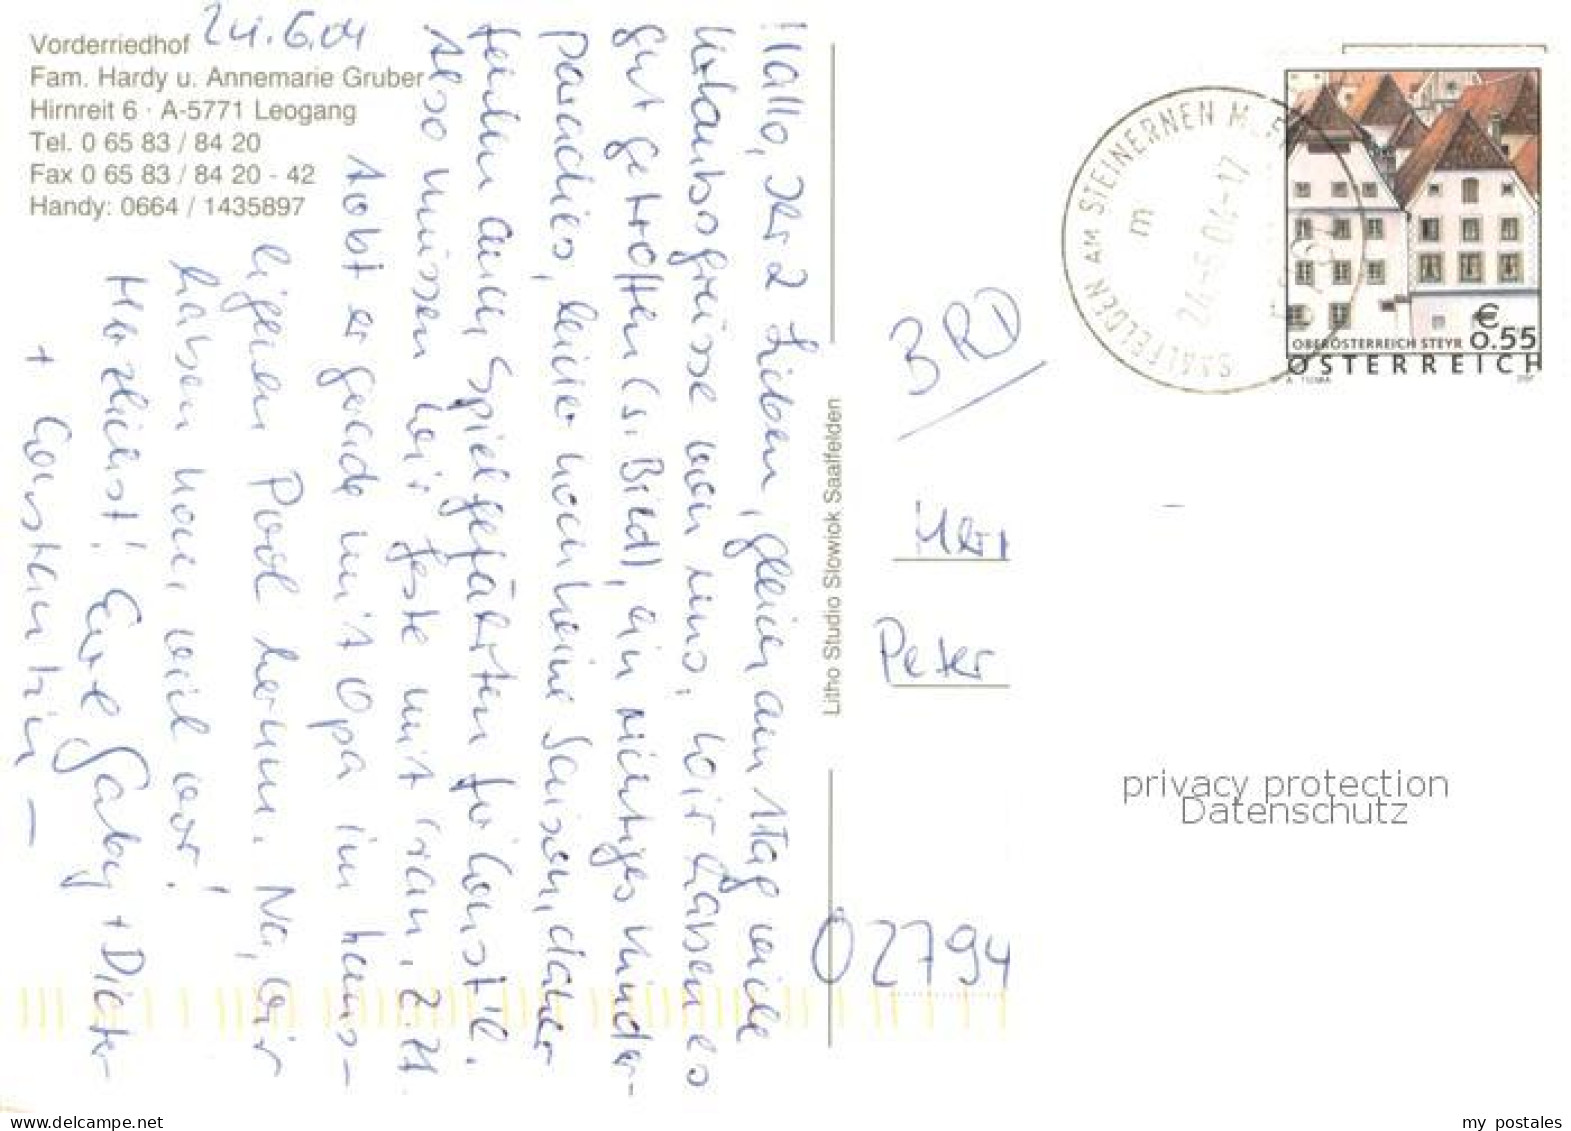 Vorderriedhof
Fam. Hardy u. Annemarie Gruber
Hirnreit 6 · A-5771 Leogang
Tel. 0 65 83 / 84 20
Fax 0 65 83 / 84 20 - 42
Handy: 0664 / 1435897
24.6.04
Hallo, Ihr 2 Lieben, gleich am 1. Tag viele
Urlaubsgrüsse von uns. Wir haben es
gut getroffen (s. Bild), ein richtiges Kinder-
paradies, leider noch keine Saison, daher
fehlen auch Spielgefährten für Const'l.
Also müssen wir feste mit ran, z. Zt.
tobt er gerade mit Opa im haus-
eigenen Pool herum. Na, wir
haben noch viel vor!
Herzlichst! Eure Gaby + Dieter
+ Constantin –
Litho Studio Slowiok Saalfelden
BRD
Peter
02794
SAALFELDEN AM STEINERNEN M
m
OBERÖSTERREICH STEYR
€ 0.55
ÖSTERREICH
privacy protection
Datenschutz
www.delcampe.net
my_postales